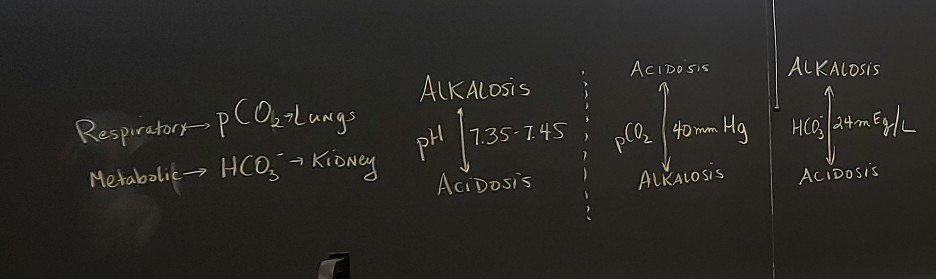 Respiratory → pCO₂ → Lungs
Metabolic → HCO₃⁻ → Kidney
ALKALOSIS
pH 7.35-7.45
ACIDOSIS
ACIDOSIS
pCO₂ 40mm Hg
ALKALOSIS
ALKALOSIS
HCO₃⁻ 24mEq/L
ACIDOSIS